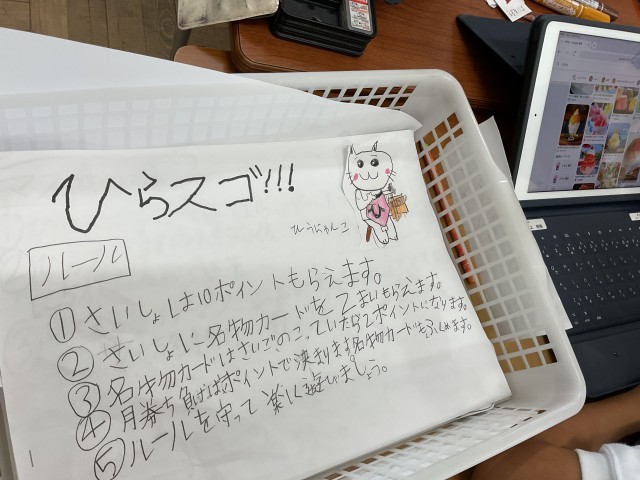 ひらスゴ!!!
ひらにゃんこ
ひ
ルール
①さいしょは10ポイントもらえます。
②さいしょに名物カードを2まいもらえます。
③名物カードはさいごのこっていたら2ポイントになります。
④勝ち負けはポイントで決まります名物カードをふくめます。
⑤ルールを守って楽しく遊びましょう。